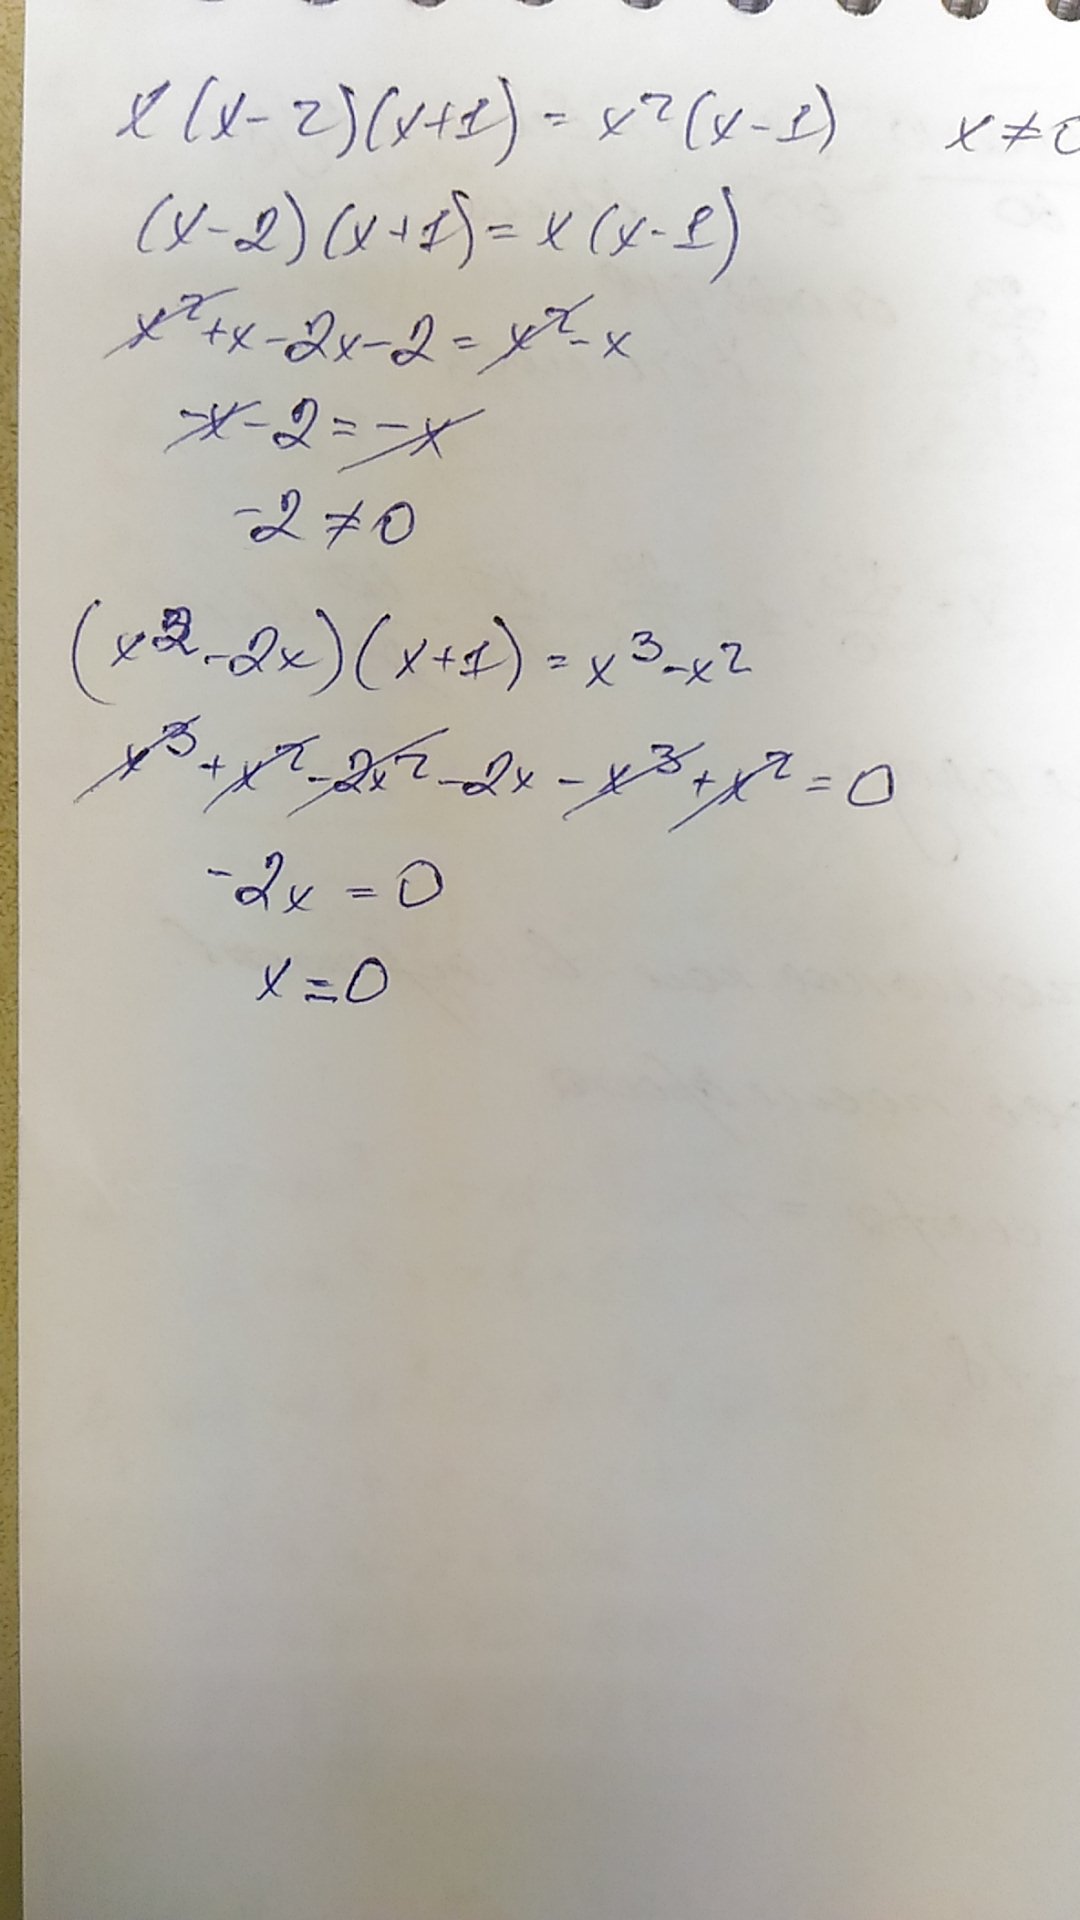 x(x-2)(x+1)=x²(x-1) x≠0
(x-2)(x+1)=x(x-1)
x²+x-2x-2=x²-x
-x-2=-x
-2≠0
(x²-2x)(x+1)=x³-x²
x³+x²-2x²-2x-x³+x²=0
-2x=0
x=0